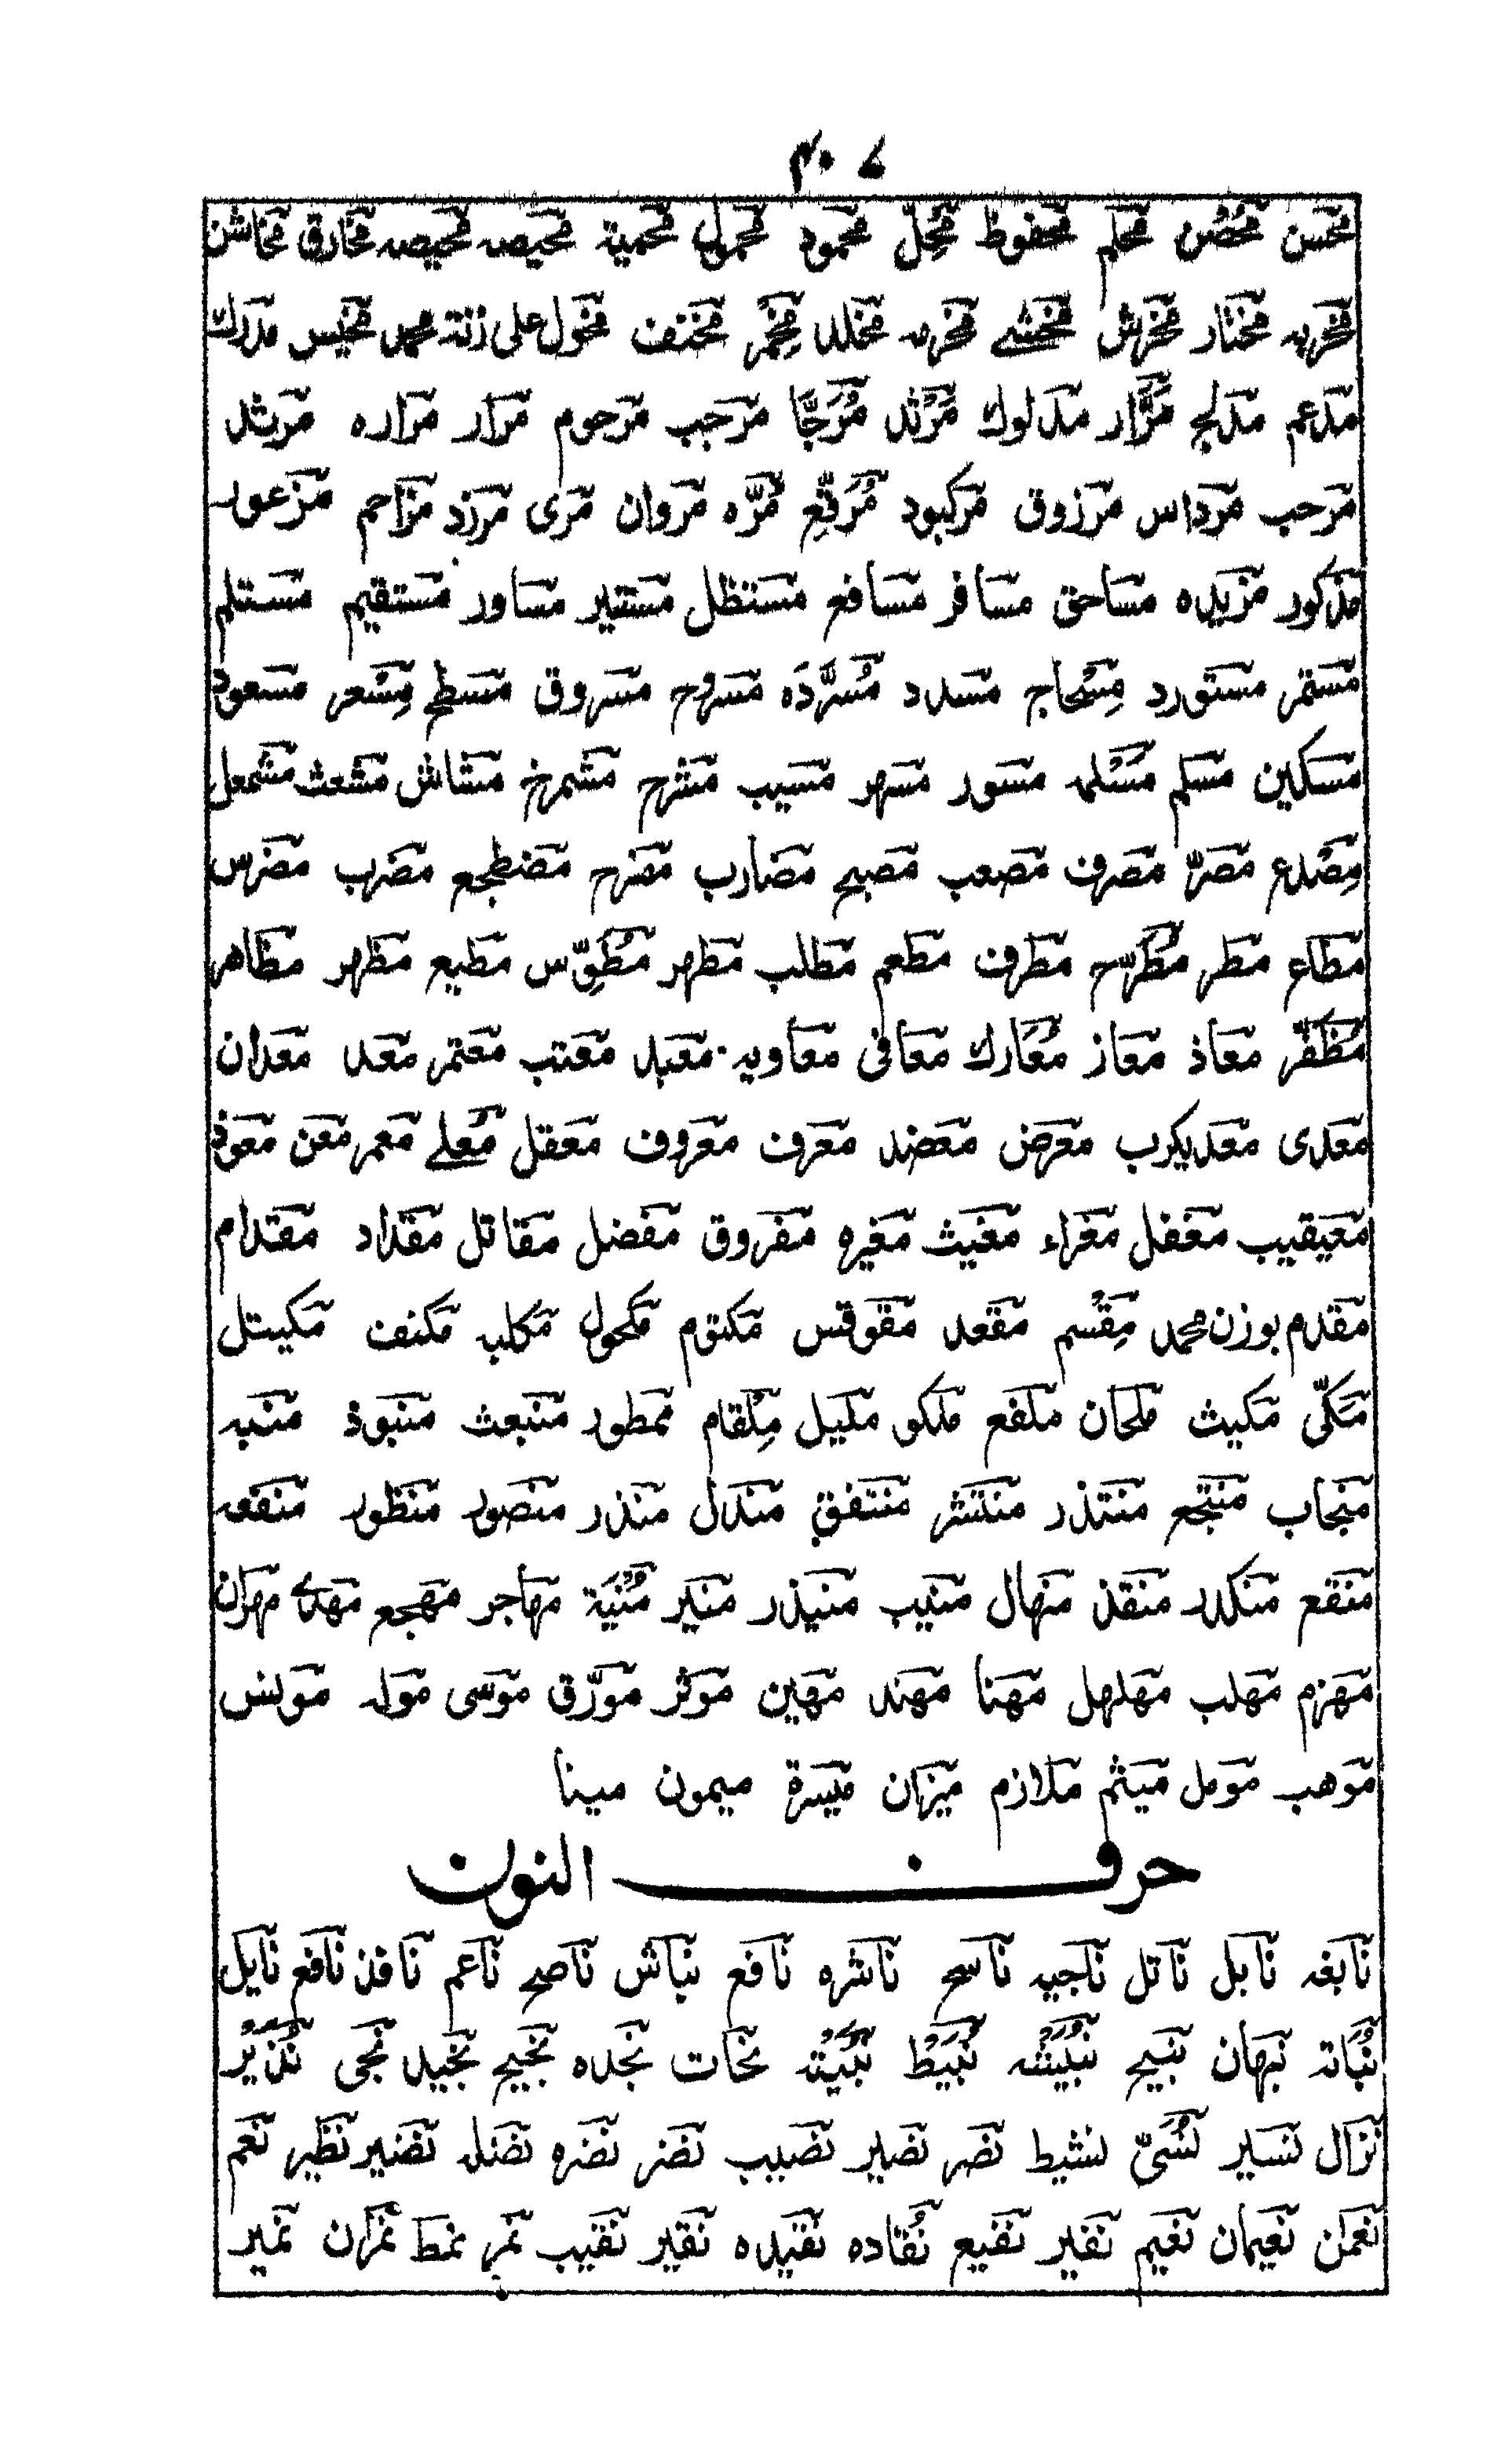 ۴۰۷
محسن مُحُصْن محلم محفوظ مُحِلّ محمود محمول محمية محيصه محيصه مخارق مخاشن
مخربه مختار مخرش مخشے مخرمه مخلد مِخْمَر مخنف مخول علی زنة محمد مخيس مدرك
مدعم مدلج مَرَّار مدلوك مَرْثد مُرَجَّا مرجب مرحوم مرار مراره مريثد
مرحب مرداس مرزوق مركبود مُرَقِّع مُرّه مروان مری مرزد مزاحم مزعور
مذكور مزيده مساحق مسافر مسافع مستظل مستنير مساور مستقيم مستلم
مستمر مستورد مِسْحاج مسدد مُسَرَّدَه مسروح مسروق مسطح مِسْعر مسعود
مسكين مسلم مَسْلمه مسور مسهر مسيب مشرح مشمرخ مشاش مشعث مشمعل
مِصْدع مصرّ مصرف مصعب مصبح مضارب مضرح مضطجع مضرب مضرس
مطاع مطر مُطَرّح مطرف مطعم مطلب مطهر مُطَوِّس مطيع مظهر مظاهر
مُظَفّر معاذ معاز مُعَارك معافی معاويه معبد معتب معتمر معد معدان
معدی معديكرب معرض معضد معرف معروف معقل مُعلے معمر معن معوذ
معيقيب مغفل مغراء مغيث مغيره مفروق مفضل مقاتل مقداد مقدام
مقدم بوزن محمد مِقْسم مقعد مقوقس مكتوم مكحول مكلبه مكنف مكيتل
مَكّی مكيث ملحان ملفع ملكو مليل مِلْقام ممطور منبعث منبوذ منبه
منجاب منتجع منتذر منتشر منتفق مندل منذر منصور منظور منقعه
منقع منكدر منقذ منهال منيب منيذر منير مُنْيَة مهاجر مهجع مهدی مهران
مهزم مهلب مهلهل مهنا مهند مهين موثر مورّق موسی موله مونس
موهب مومل ميثم ملازم ميزان ميسرة ميمون مينا
حرف النون
نابغه نابل ناتل ناجيه ناسح ناشره نافع نباش ناصح ناعم نافذ نافع نايل
نُبَاته نبهان نبيح نُبَيْشه نُبَيْط نُبَيْته نحات نجده نجيح نجيد نجی نُذَيْر
نزال نسير نُسَیّ نشيط نصر نصير نصيب نضر نضره نضله نضير نظير نعم
نعمان نعيمان نعيم نفير نفيع نُقَاده نقيده نقير نقيب نمر نمط نمران نمير